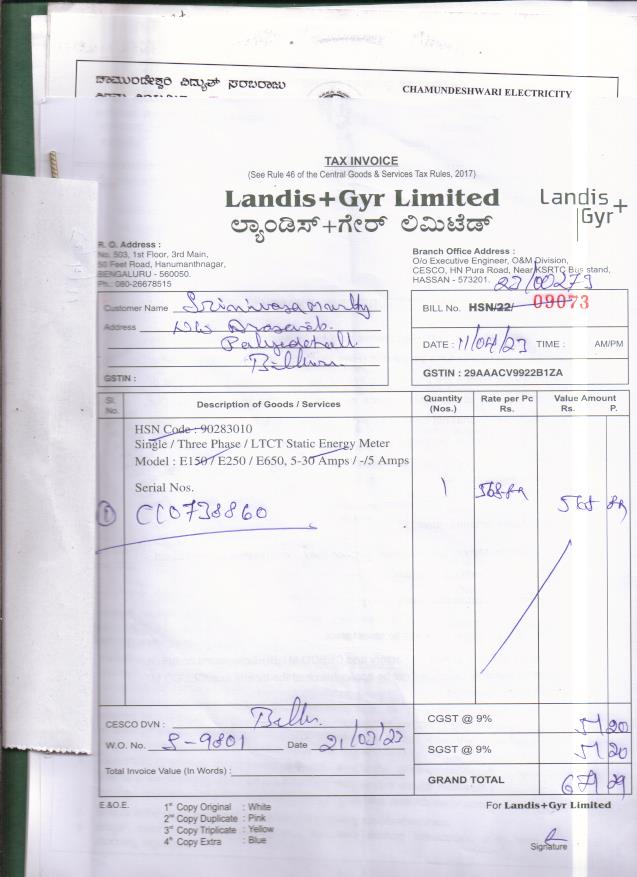 ಚಾಮುಂಡೇಶ್ವರಿ ವಿದ್ಯುತ್ ಸರಬರಾಜು
CHAMUNDESHWARI ELECTRICITY
TAX INVOICE
(See Rule 46 of the Central Goods & Services Tax Rules, 2017)
Landis+Gyr Limited
Landis+
Gyr
ಲ್ಯಾಂಡಿಸ್+ಗೇರ್ ಲಿಮಿಟೆಡ್
R. O. Address :
No. 503, 1st Floor, 3rd Main,
50 Feet Road, Hanumanthnagar,
BENGALURU - 560050.
Ph.: 080-26678515
Branch Office Address :
O/o Executive Engineer, O&M Division,
CESCO, HN Pura Road, Near KSRTC Bus stand,
HASSAN - 573201.
Customer Name Srinivasa Murthy
Address
GSTIN :
BILL No. HSN/22/ 09073
DATE : 11/04/23 TIME : AM/PM
GSTIN : 29AAACV9922B1ZA
Sl. No. Description of Goods / Services Quantity (Nos.) Rate per Pc Rs. Value Amount Rs. P.
HSN Code : 90283010
Single / Three Phase / LTCT Static Energy Meter
Model : E150 / E250 / E650, 5-30 Amps / -/5 Amps
Serial Nos.
1 CC0738860 1
CESCO DVN :
W.O. No. S-9801 Date 21/03/23
Total Invoice Value (In Words) :
CGST @ 9% 51 20
SGST @ 9% 51 20
GRAND TOTAL 671 29
E.&O.E.
1st Copy Original : White
2nd Copy Duplicate : Pink
3rd Copy Triplicate : Yellow
4th Copy Extra : Blue
For Landis+Gyr Limited
Signature